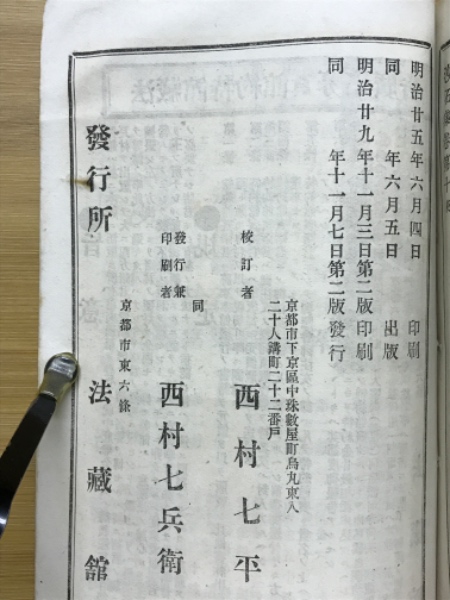 明治廿五年六月四日 印刷
同 年六月五日 出版
明治廿九年十一月三日第二版印刷
同 年十一月七日第二版發行
京都市下京區中珠數屋町烏丸東入
二十人講町二十二番戸
校訂者 西村七平
同
發行兼
印刷者 西村七兵衛
京都市東六條
發行所 法藏館